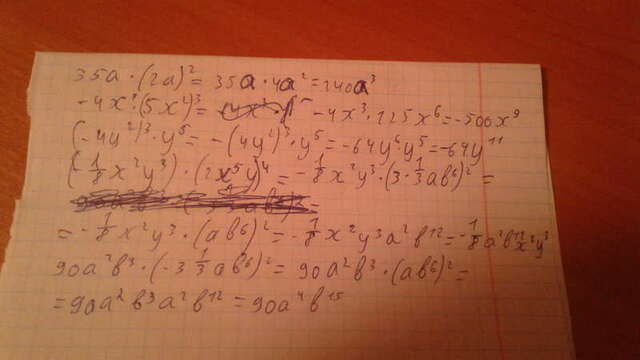 35a·(2a)² = 35a·4a² = 140a³
-4x³·(5x²)³ = -4x³·125x⁶ = -500x⁹
(-4y²)³·y⁵ = -(4y²)³·y⁵ = -64y⁶y⁵ = -64y¹¹
(-1/8 x²y³)·(2x⁵y)⁴ = -1/8 x²y³·(3·1/3 ab⁶)² =
= -1/8 x²y³·(ab⁶)² = -1/8 x²y³a²b¹² = -1/8 a²b¹²x²y³
90a²b³·(-3 1/3 ab⁶)² = 90a²b³·(ab⁶)² =
= 90a²b³a²b¹² = 90a⁴b¹⁵